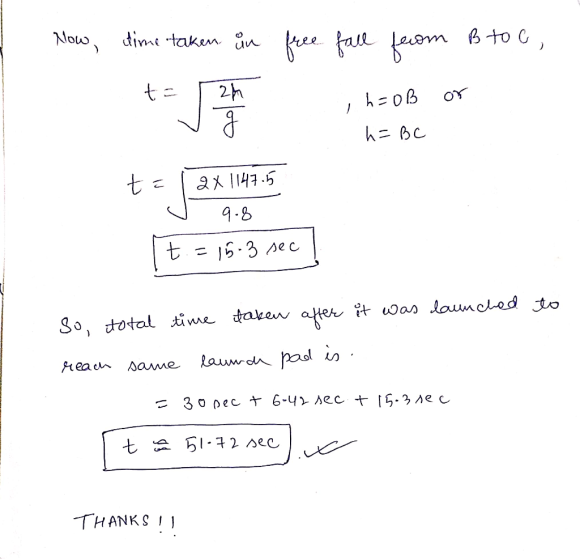 Now, time taken in free fall from B to C,
t = √(2h/g) , h = OB or
h = BC
t = √(2 × 1147.5 / 9.8)
t = 15.3 sec
So, total time taken after it was launched to
reach same launch pad is.
= 30 sec + 6.42 sec + 15.3 sec
t ≅ 51.72 sec
THANKS !!